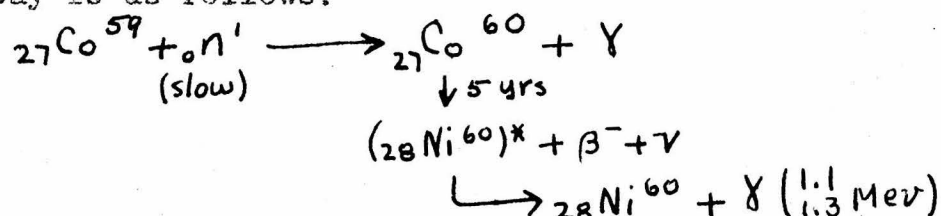 is as follows:
₂₇Co⁵⁹ + ₀n¹ ⟶ ₂₇Co⁶⁰ + γ
(slow)
↓ 5 yrs
(₂₈Ni⁶⁰)* + β⁻ + ν
⟶ ₂₈Ni⁶⁰ + γ (1.1 1.3 Mev)